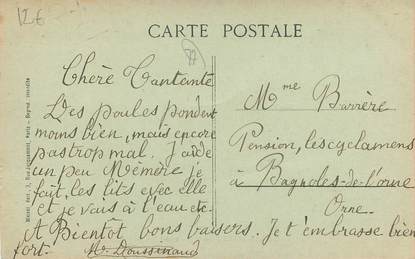 12€
CARTE POSTALE
Chère Tantante
Des poules pondent
moins bien, mais encore
pas trop mal. J'aide
un peu Mémère je
fait, les lits avec elle
et je vais à l'eau etc.
A Bientôt bons baisers. Je t'embrasse bien
fort.
Mme Barrère
Pension, les cyclamens
à Bagnoles-de-l'orne
Orne.